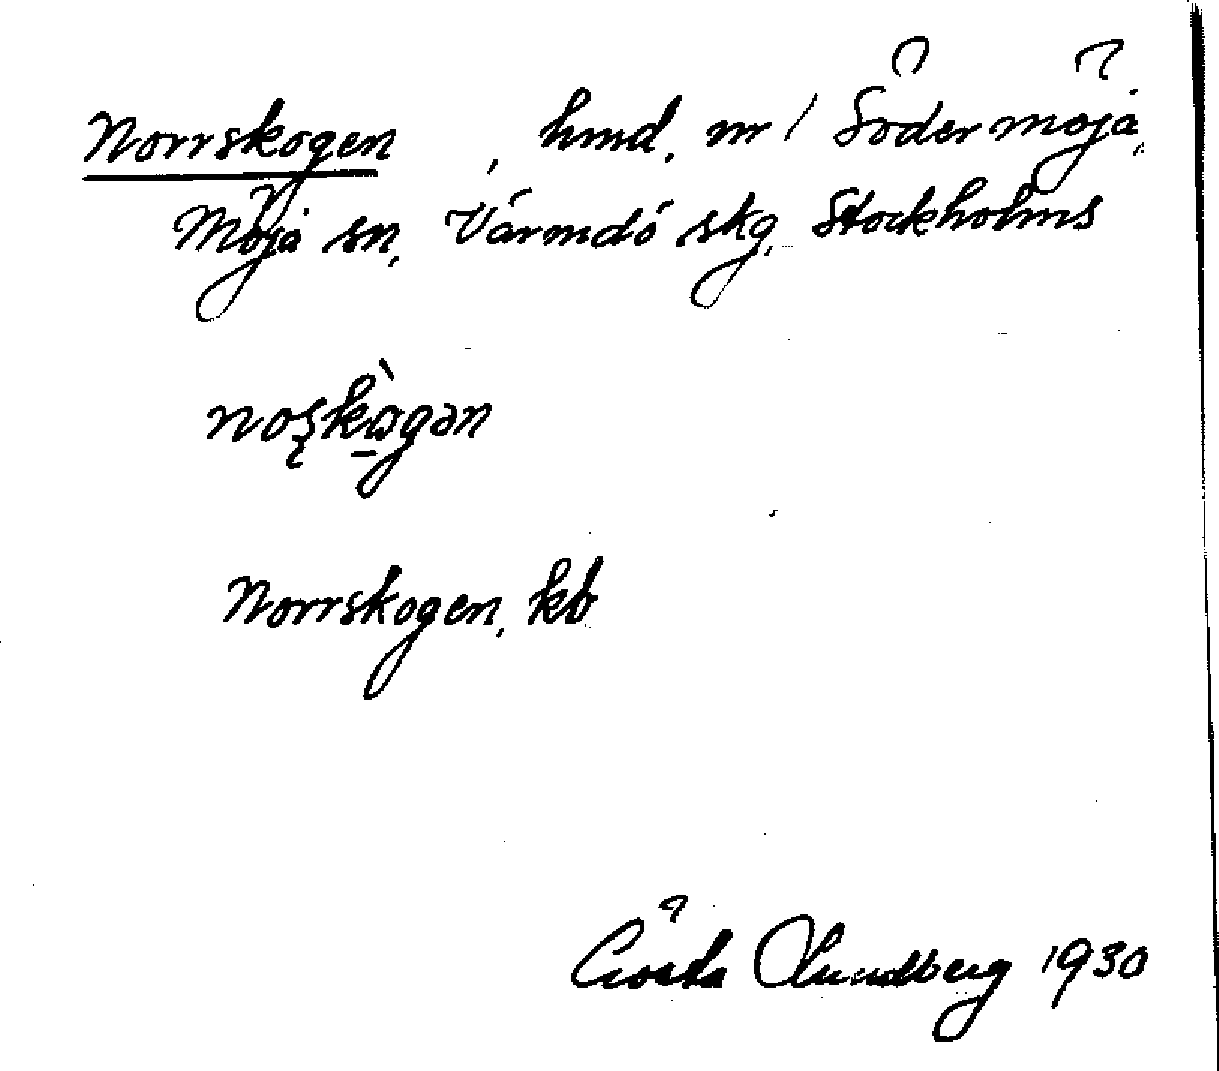 Norrskogen, hmd. nr 1 Södermöja,
Möja sn, Värmdö skg, Stockholms
Norrskogen, kb
Gösta 1930